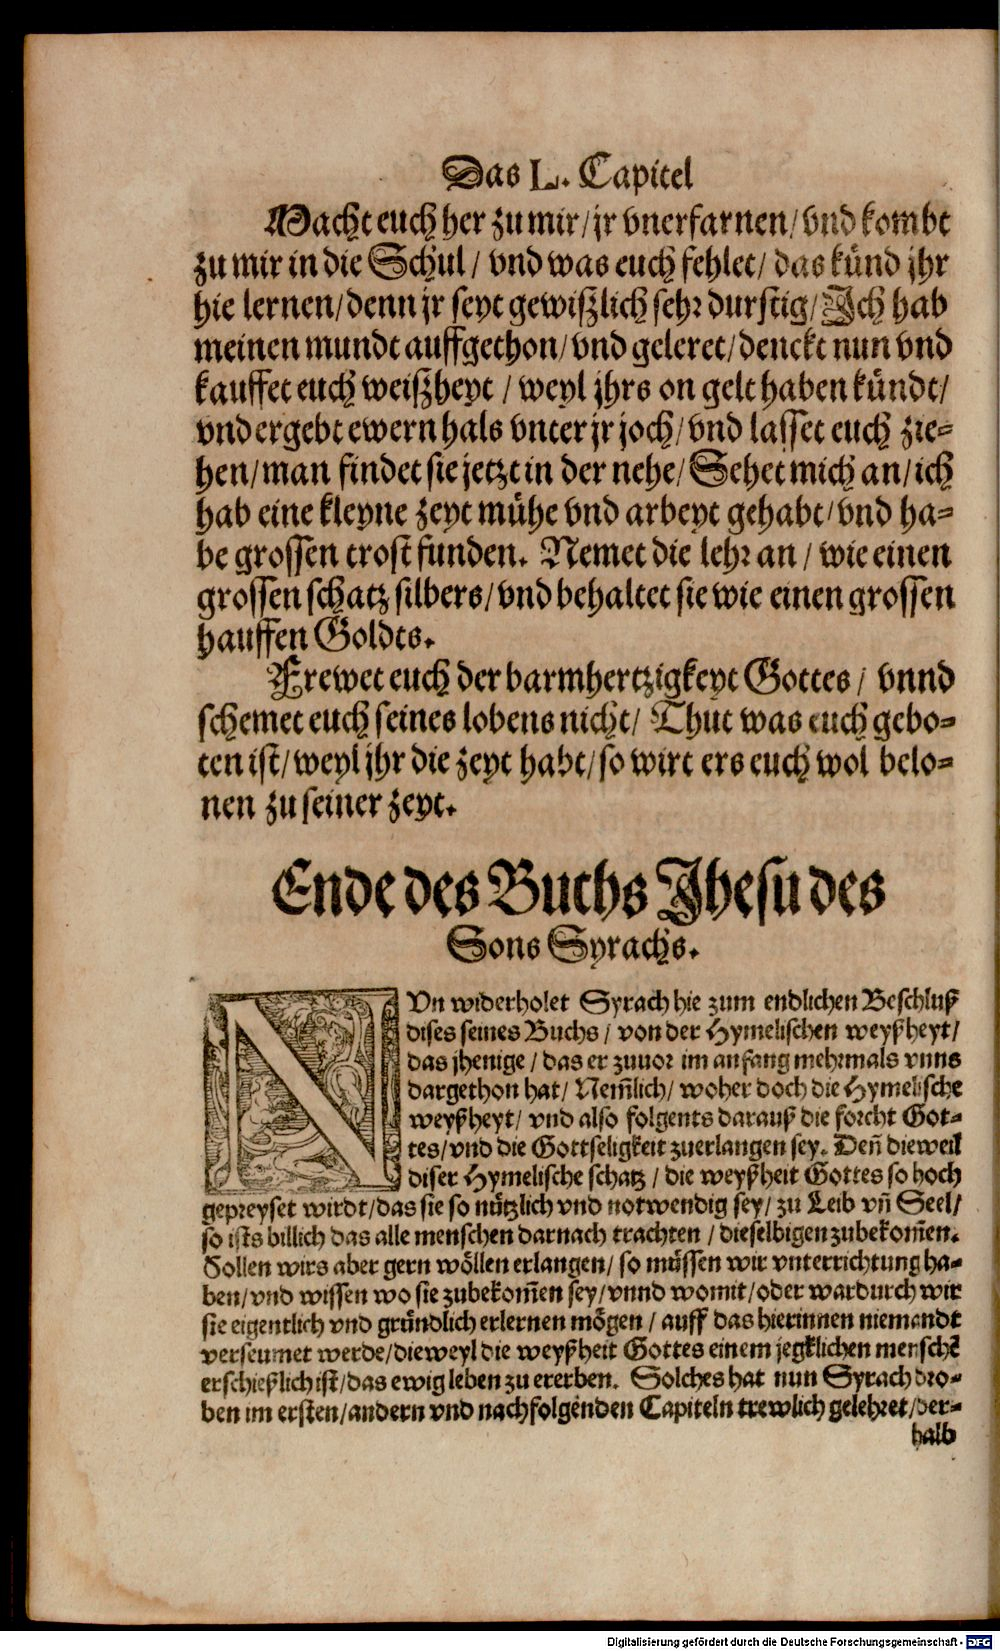 Das L. Capitel
Macht euch her zu mir/ jr vnerfarnen/ vnd kombt
zu mir in die Schul/ vnd was euch fehlet/ das künd jhr
hie lernen/ denn jr seyt gewißlich sehr durstig/ Ich hab
meinen mundt auffgethon/ vnd geleret/ denckt nun vnd
kauffet euch weißheyt/ weyl jhrs on gelt haben kündt/
vnd ergebt ewern hals vnter jr joch/ vnd lasset euch zie-
hen/ man findet sie jetzt in der nehe/ Sehet mich an/ ich
hab eine kleyne zeyt mühe vnd arbeyt gehabt/ vnd ha-
be grossen trost funden. Nemet die lehr an/ wie einen
grossen schatz silbers/ vnd behaltet sie wie einen grossen
hauffen Goldts.
Frewet euch der barmhertzigkeyt Gottes/ vnnd
schemet euch seines lobens nicht/ Thut was euch gebo-
ten ist/ weyl jhr die zeyt habt/ so wirt ers euch wol belo-
nen zu seiner zeyt.
Ende des Buchs Jhesu des
Sons Syrachs.
NVn widerholet Syrach hie zum endlichen Beschluß
dises seines Buchs/ von der Hymelischen weyßheyt/
das jhenige/ das er zuuor im anfang mehrmals vnns
dargethon hat/ Nem̃lich/ woher doch die Hymelische
weyßheyt/ vnd also folgents darauß die forcht Got-
tes/ vnd die Gottseligkeit zuerlangen sey. Deñ dieweil
diser Hymelische schatz/ die weyßheit Gottes so hoch
gepreyset wirdt/ das sie so nützlich vnd notwendig sey/ zu Leib vñ Seel/
so ists billich das alle menschen darnach trachten/ dieselbigen zubekom̃en.
Sollen wirs aber gern wöllen erlangen/ so müssen wir vnterrichtung ha-
ben/ vnd wissen wo sie zubekom̃en sey/ vnnd womit/ oder wardurch wir
sie eigentlich vnd gründlich erlernen mögen/ auff das hierinnen niemandt
verseumet werde/ dieweyl die weyßheit Gottes einem jegklichen menschẽ
erschießlich ist/ das ewig leben zu ererben. Solches hat nun Syrach dro-
ben im ersten/ andern vnd nachfolgenden Capiteln trewlich gelehret/ der-
halb
Digitalisierung gefördert durch die Deutsche Forschungsgemeinschaft - DFG